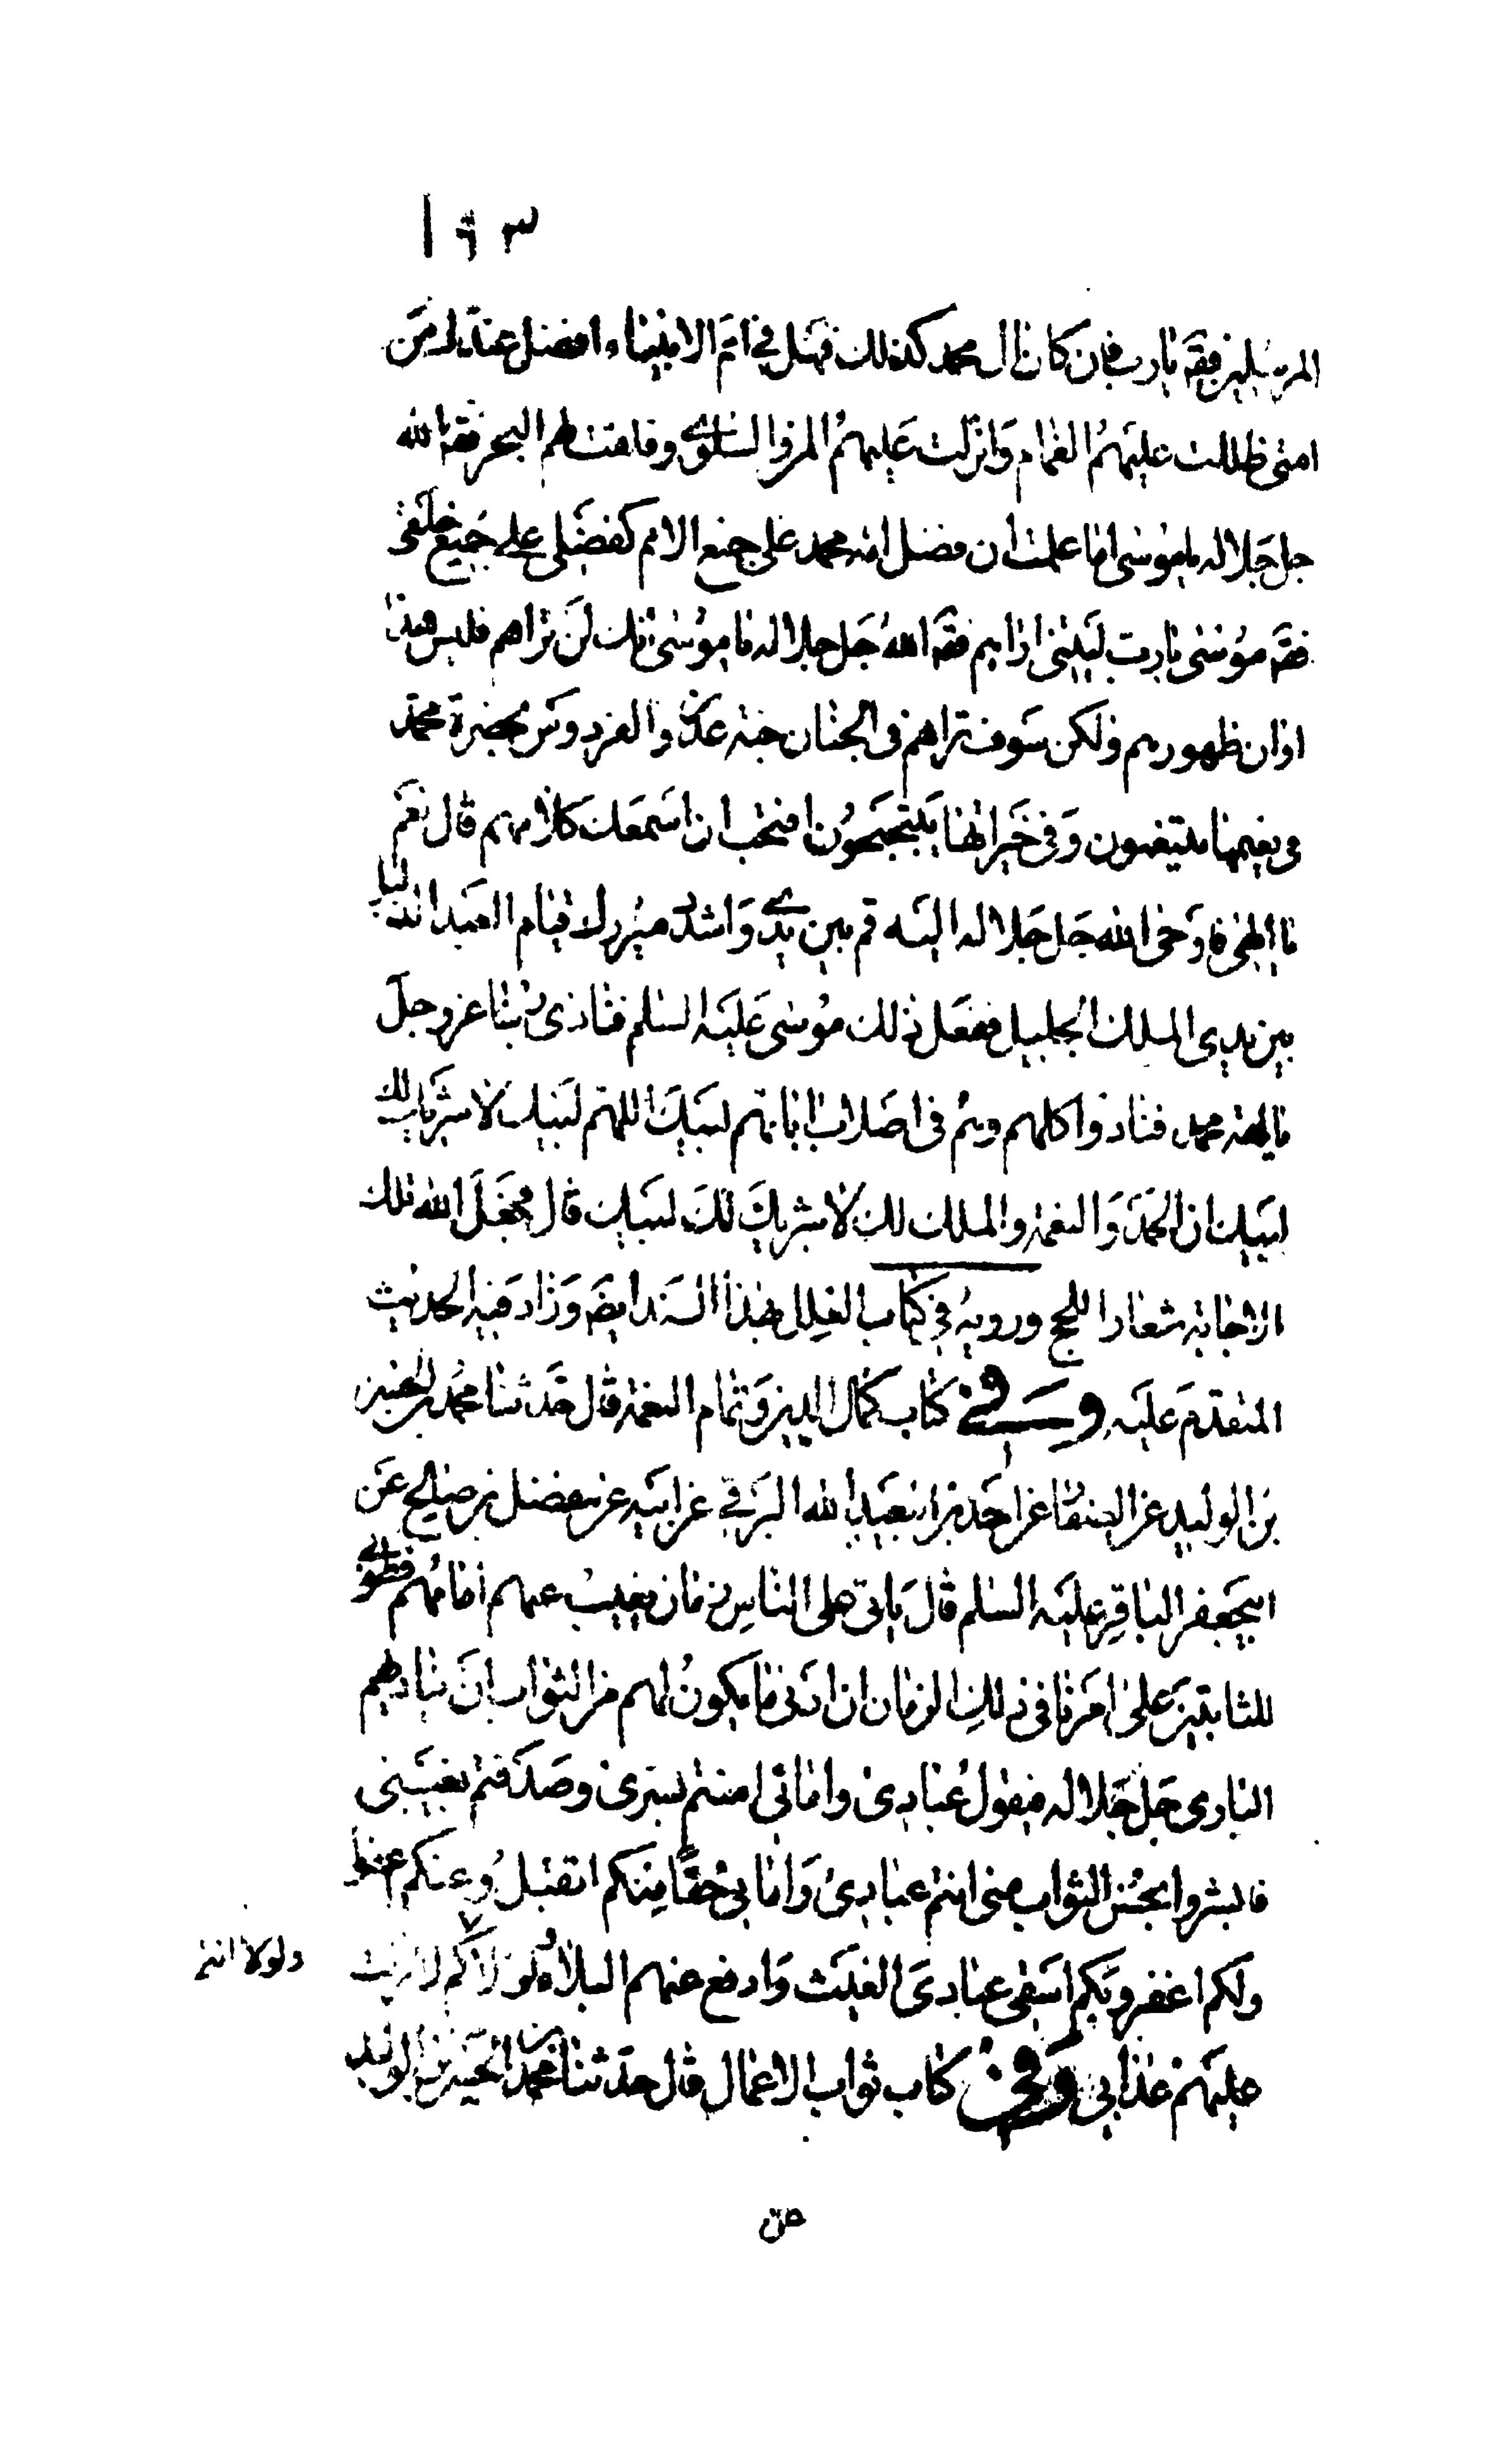 ١٩٣
المرسلين فقه يا رب فان كان ال محمد كذلك فهل في امم الانبياء افضل عندك من
امتى ظللت عليهم الغمام وانزلت عليهم المن والسلوى وفلقت لهم البحر فقه الله
جل جلاله يا موسى اما علمت ان فضل امة محمد على جميع الامم كفضلى على جميع خلقى
فقه موسى يا رب ليتنى اراهم فقه الله جل جلاله يا موسى انك لن تراهم فليس هذا
اوان ظهورهم ولكن سوف تراهم فى الجنان جنة عدن والفردوس بحضرة محمد
فى نعيمها يتقلبون وفى خيراتها يتبجبحون افتحب ان اسمعك كلامهم قال نعم
يا الهى فاوحى الله جل جلاله اليه قم بين يدى واشدد ميزرك قيام العبد الذليل
بين يدى الملك الجليل ففعل ذلك موسى عليه السلم فنادى ربنا عز وجل
يا امة محمد فنادوا كلهم وهم فى اصلاب ابائهم لبيك اللهم لبيك لا شريك لك
لبيك ان الحمد والنعمة والملك لك لا شريك لك لبيك قال فجعل الله تلك
الاجابة شعار الحج ورويه في كتاب العلل بهذا السند ايضه وزاد فيه الحديث
المتقدم عليه وفي كتاب كمال الدين وتمام النعمة قال حدثنا محمد بن الحسن
بن الوليد عن الصفار عن احمد بن ابيعبد الله البرقي عن ابيه عن مفضل بن صالح عن
ابيجعفر الباقر عليه السلم قال ياتى على الناس زمان يغيب عنهم امامهم فطوبى
للثابتين على امرنا فى ذلك الزمان ان ادنى ما يكون لهم من الثواب ان يناديهم
البارى جل جلاله فيقول عبادى وامائى امنتم بسرى وصدقتم بغيبتى
فابشروا بحسن الثواب منى انتم عبادى وامائى حقا منكم اتقبل وعنكم اعفوا
ولكم اغفر وبكم اسقى عبادى الغيث وادفع عنهم البلاء ولولاكم لانزلت
ولولا انتم
عليهم عذابى وفي كتاب ثواب الاعمال قال حدثنا محمد بن الحسن بن الوليد